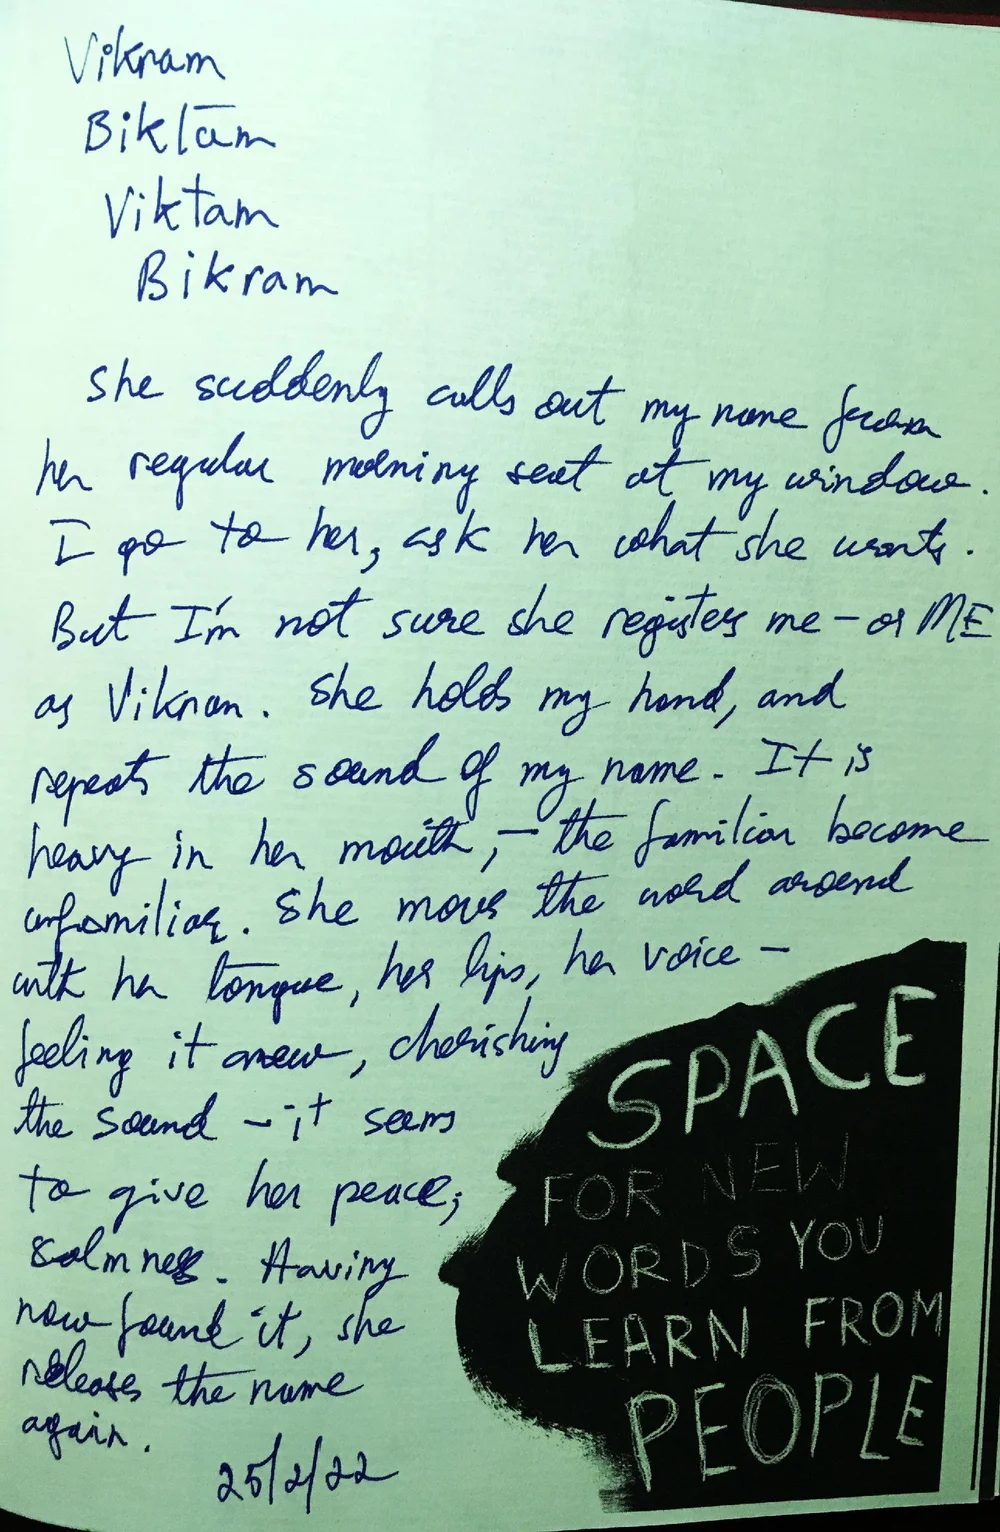 Vikram
Biklām
Viktam
Bikram
She suddenly calls out my name from
her regular morning seat at my window.
I go to her, ask her what she wants.
But I'm not sure she registers me – or ME
as Vikram. She holds my hand, and
repeats the sound of my name. It is
heavy in her mouth, – the familiar become
unfamiliar. She moves the word around
with her tongue, her lips, her voice –
feeling it anew, cherishing
the sound – it seems
to give her peace,
calmness. Having
now found it, she
releases the name
again.
25/2/22
SPACE
FOR NEW
WORDS YOU
LEARN FROM
PEOPLE